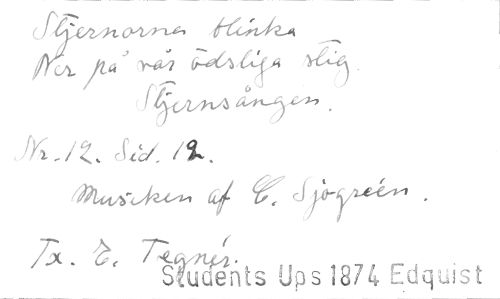 Stjernorna blinka
Ner på vår ödsliga stig.
Stjernsången.
Nr. 12. Sid. 12.
Musiken af C. Sjögreén.
Tx. E. Tegnér.
Students Ups 1874 Edquist